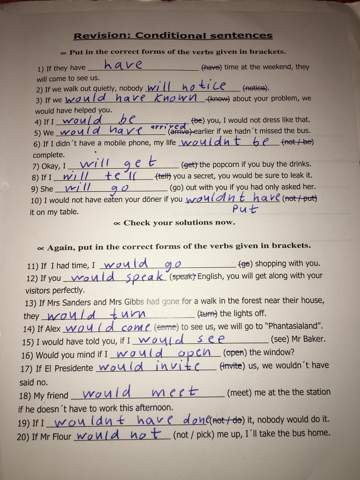 Revision: Conditional sentences
∝ Put in the correct forms of the verbs given in brackets.
1) If they have have (have) time at the weekend, they
will come to see us.
2) If we walk out quietly, nobody will notice (notice).
3) If we would have known (know) about your problem, we
would have helped you.
4) If I would be (be) you, I would not dress like that.
5) We would have arrived (arrive) earlier if we hadn´t missed the bus.
6) If I didn´t have a mobile phone, my life wouldnt be (not / be)
complete.
7) Okay, I will get (get) the popcorn if you buy the drinks.
8) If I will tell (tell) you a secret, you would be sure to leak it.
9) She will go (go) out with you if you had only asked her.
10) I would not have eaten your döner if you wouldnt have (not / put)
put
it on my table.
∝ Check your solutions now.
∝ Again, put in the correct forms of the verbs given in brackets.
11) If I had time, I would go (go) shopping with you.
12) If you would speak (speak) English, you will get along with your
visitors perfectly.
13) If Mrs Sanders and Mrs Gibbs had gone for a walk in the forest near their house,
they would turn (turn) the lights off.
14) If Alex would come (come) to see us, we will go to "Phantasialand".
15) I would have told you, if I would see (see) Mr Baker.
16) Would you mind if I would open (open) the window?
17) If El Presidente would invite (invite) us, we wouldn´t have
said no.
18) My friend would meet (meet) me at the the station
if he doesn´t have to work this afternoon.
19) If I wouldnt have done (not / do) it, nobody would do it.
20) If Mr Flour would not (not / pick) me up, I´ll take the bus home.